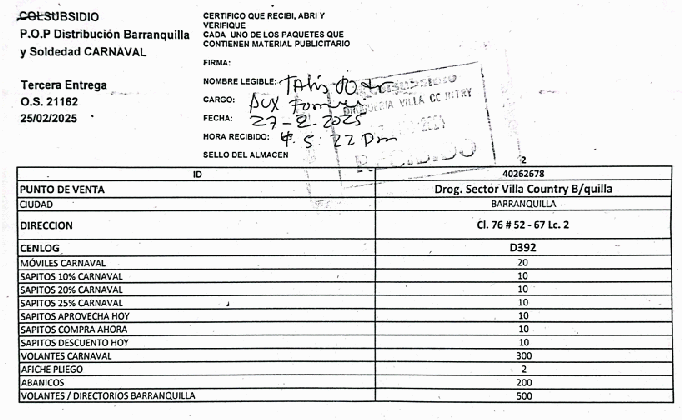 COLSUBSIDIO
P.O.P Distribución Barranquilla
y Soldedad CARNAVAL
Tercera Entrega
O.S. 21162
25/02/2025
CERTIFICO QUE RECIBI, ABRI Y
VERIFIQUE
CADA UNO DE LOS PAQUETES QUE
CONTIENEN MATERIAL PUBLICITARIO
FIRMA:
NOMBRE LEGIBLE:
CARGO: Aux
FECHA: 27-2-2025
HORA RECIBIDO: 5:22 Pm
SELLO DEL ALMACEN
VILLA COUNTRY
RECIBIDO
2
ID 40262678
PUNTO DE VENTA Drog. Sector Villa Country B/quilla
CIUDAD BARRANQUILLA
DIRECCION Cl. 76 # 52 - 67 Lc. 2
CENLOG D392
MÓVILES CARNAVAL 20
SAPITOS 10% CARNAVAL 10
SAPITOS 20% CARNAVAL 10
SAPITOS 25% CARNAVAL 10
SAPITOS APROVECHA HOY 10
SAPITOS COMPRA AHORA 10
SAPITOS DESCUENTO HOY 10
VOLANTES CARNAVAL 300
AFICHE PLIEGO 2
ABANICOS 200
VOLANTES / DIRECTORIOS BARRANQUILLA 500